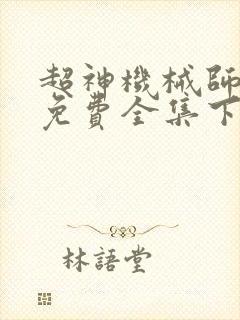 超神機械師
免費全集下
林語堂